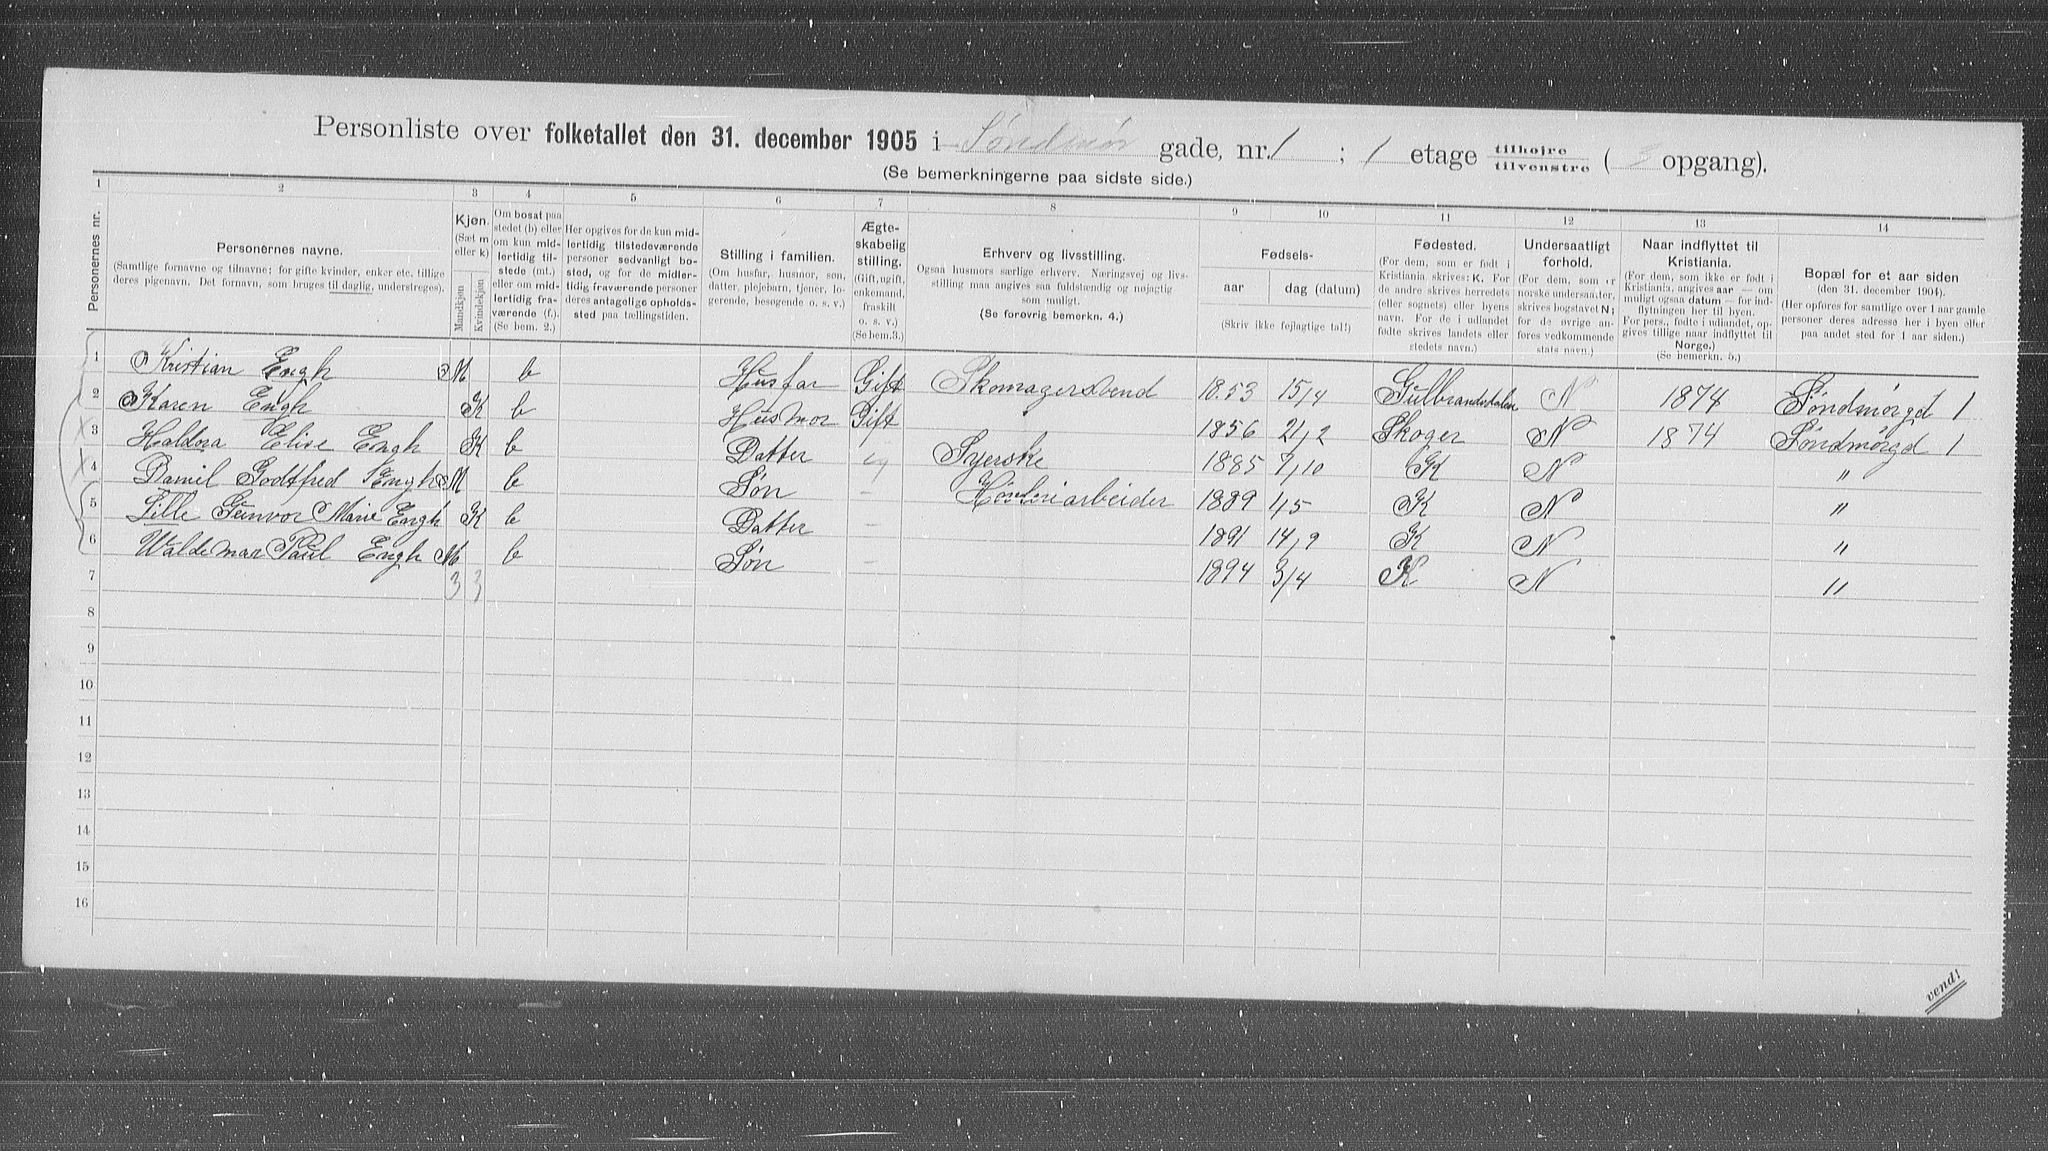 Personliste over folketallet den 31. december 1905 i Søndmør gade, nr. 1 ; 1 etage tilhøjre tilvenstre ( opgang).
(Se bemerkningerne paa sidste side.)
1 2 3 4 5 6 7 8 9 10 11 12 13 14
Personernes nr.
Personernes navne.
(Samtlige fornavne og tilnavne; for gifte kvinder, enker etc. tillige
deres pigenavn. Det fornavn, som bruges til daglig, understreges).
Kjøn.
(Sæt m
eller k)
Mandkjøn
Kvindekjøn
Om bosat paa
stedet (b) eller
om kun mid-
lertidig til-
stede (mt.)
eller om mid-
lertidig fra-
værende (f.).
(Se bem. 2.)
Her opgives for de kun mid-
lertidig tilstedeværende
personer sedvanligt bo-
sted, og for de midler-
tidig fraværende personer
deres antagelige opholds-
sted paa tællingstiden.
Stilling i familien.
(Om husfar, husmor, søn,
datter, plejebarn, tjener, lo-
gerende, besøgende o. s. v.)
Ægte-
skabelig
stilling.
(Gift, ugift,
enkemand,
fraskilt
o. s. v.)
(Se bem. 3.)
Erhverv og livsstilling.
Ogsaa husmors særlige erhverv. Næringsvej og livs-
stilling maa angives saa fuldstændig og nøjagtig
som muligt.
(Se forøvrig bemerkn. 4.)
Fødsels-
aar dag (datum)
(Skriv ikke fejlagtige tal!)
Fødested.
(For dem, som er født i
Kristiania skrives: K. For
de andre skrives herredets
(eller sognets) eller byens
navn. For de i udlandet
fødte skrives landets eller
stedets navn.)
Undersaatligt
forhold.
(For dem, som er
norske undersaatter,
skrives bogstavet N;
for de øvrige an-
føres vedkommende
stats navn.)
Naar indflyttet til
Kristiania.
(For dem, som ikke er født i
Kristiania, angives aar — om
muligt ogsaa datum — for ind-
flytningen her til byen.
For pers., fødte i udlandet, op-
gives tillige naar indflyttet til
Norge.)
(Se bemerkn. 5.)
Bopæl for et aar siden
(den 31. december 1904).
(Her opføres for samtlige over 1 aar gamle
personer deres adresse her i byen eller
paa andet sted for 1 aar siden.)
1 Kristian Engh M b Husfar Gift Skomagersvend 1853 15/4 Gulbrandsdalen N 1874 Søndmørgd 1
2 Karen Engh K b Husmor Gift 1856 21/2 Skoger N 1874 Søndmørgd 1
3 Haldora Elise Engh K b Datter ug Syerske 1885 7/10 K N "
4 Daniel Godtfred Engh M b Søn – 1889 4/5 K N "
5 Lille Gunvor Marie Engh K b Datter – 1891 14/9 K N "
6 Waldemar Paul Engh M b Søn – 1894 3/4 K N "
7 3 3
8
9
10
11
12
13
14
15
16
vend!